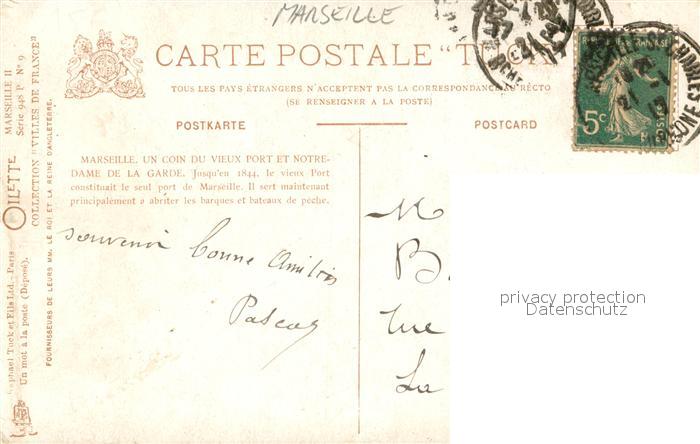 MARSEILLE
CARTE POSTALE "T
TOUS LES PAYS ÉTRANGERS N'ACCEPTENT PAS LA CORRESPONDANCE AU RECTO
(SE RENSEIGNER A LA POSTE)
POSTKARTE
POSTCARD
5c
MARSEILLE. UN COIN DU VIEUX PORT ET NOTRE-
DAME DE LA GARDE. Jusqu'en 1844, le vieux Port
constituait le seul port de Marseille. Il sert maintenant
principalement a abriter les barques et bateaux de pêche.
souvenir bonne
Pascal
M
B.
rue
La
privacy protection
Datenschutz
Raphael Tuck et Fils Ltd.-Paris OILETTE MARSEILLE II
Un mot à la poste (Déposé). Série 948 P Nº 9
COLLECTION "VILLES DE FRANCE"
FOURNISSEURS DE LEURS MM. LE ROI ET LA REINE D'ANGLETERRE.